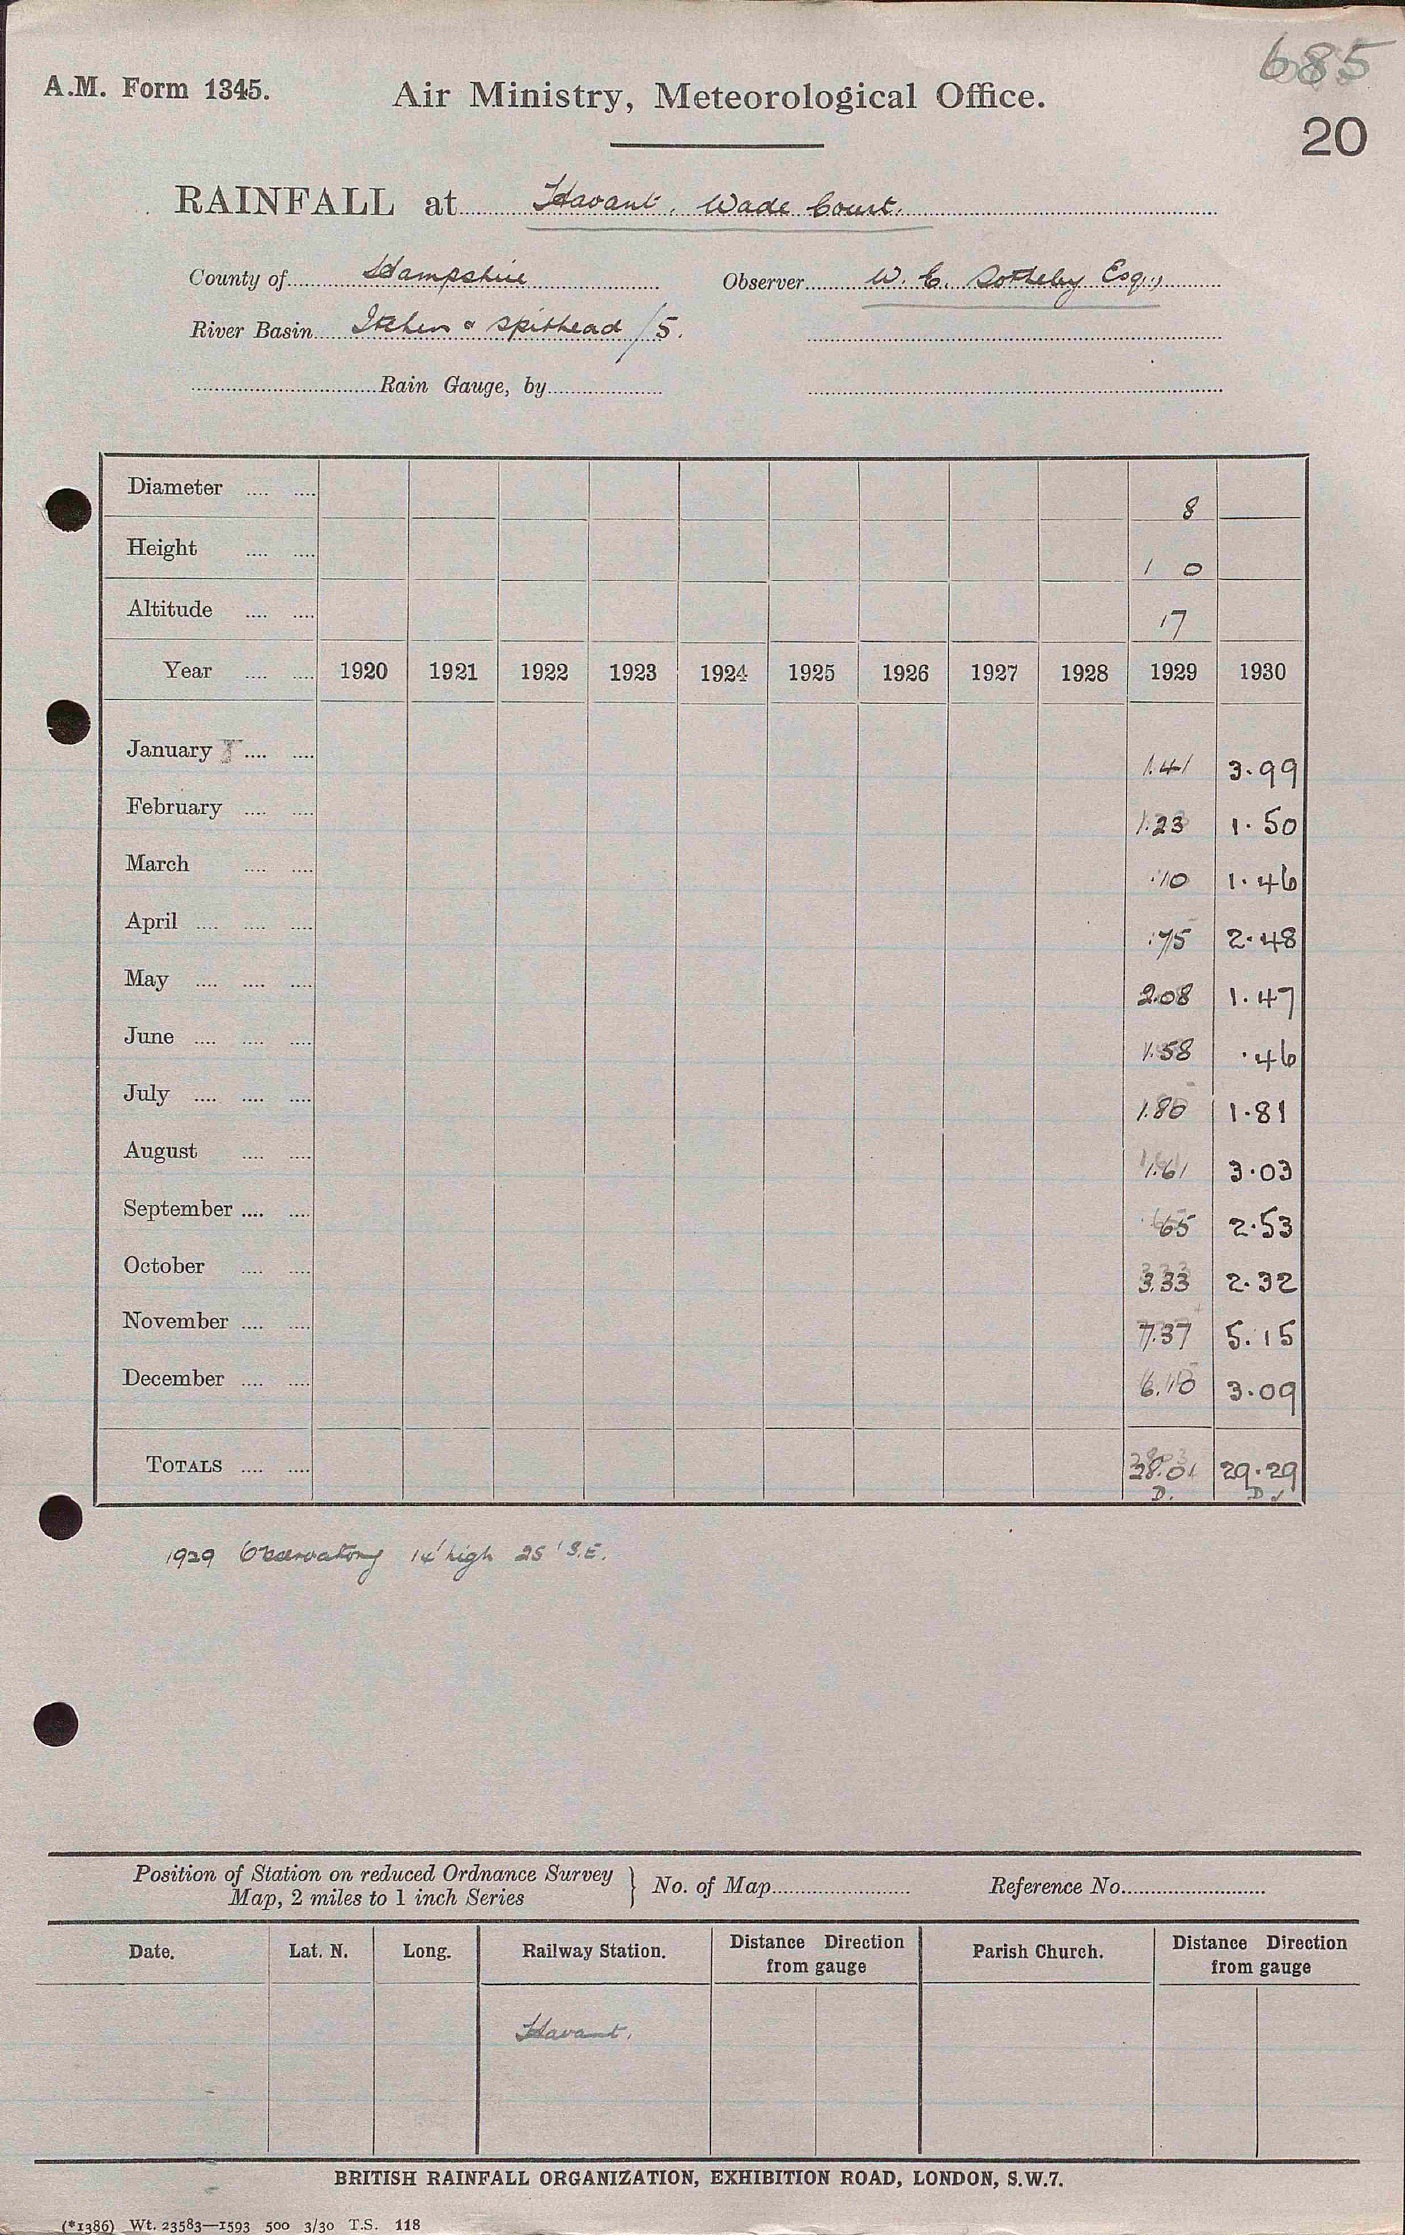 685
A.M. Form 1345.
Air Ministry, Meteorological Office.
20
RAINFALL at Havant, Wade Court.
County of Hampshire Observer W. E. Sotheby Esq.,
River Basin Itchen & Spithead /5.
Rain Gauge, by
Diameter 8
Height 1 0
Altitude 17
Year 1920 1921 1922 1923 1924 1925 1926 1927 1928 1929 1930
January 1.41 3.99
February 1.23 1.50
March .10 1.46
April .75 2.48
May 2.08 1.47
June 1.58 .46
July 1.80 1.81
August 1.61 3.03
September .65 2.53
October 3.33 2.32
November 7.37 5.15
December 6.10 3.09
TOTALS 28.01 29.29
D. D ✓
1929 Observatory 14' high 25' S.E.
Position of Station on reduced Ordnance Survey
Map, 2 miles to 1 inch Series } No. of Map Reference No.
Date. Lat. N. Long. Railway Station. Distance Direction from gauge Parish Church. Distance Direction from gauge
Havant.
BRITISH RAINFALL ORGANIZATION, EXHIBITION ROAD, LONDON, S.W.7.
(*1386) Wt. 23583—1593 500 3/30 T.S. 118